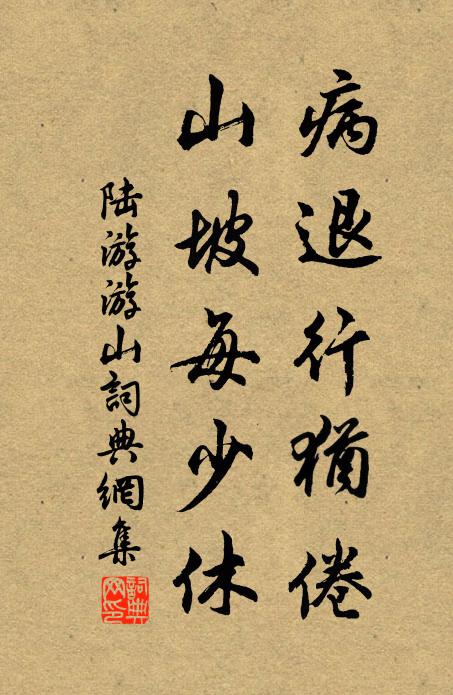 病退行猶倦
山坡每少休
陆游游山詞典網集
詞典
网印